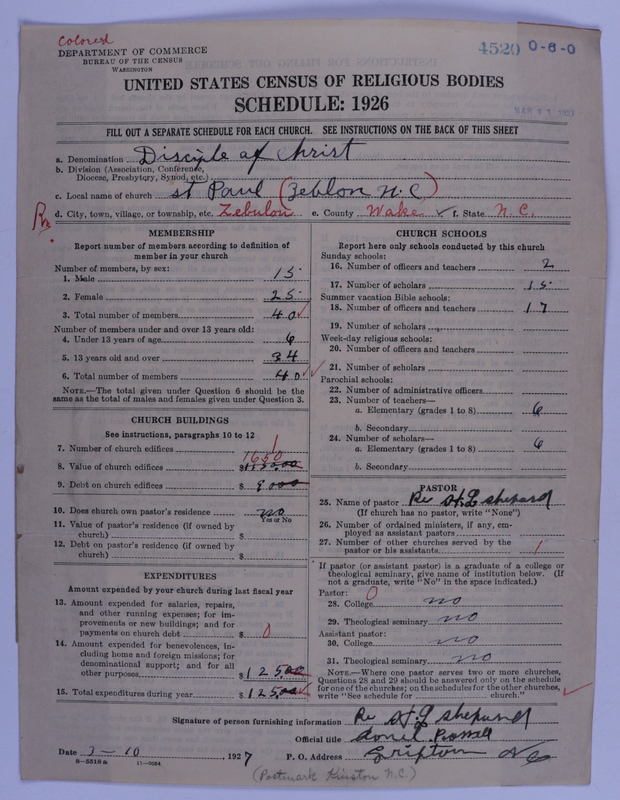 Colored
4520 0-6-0
DEPARTMENT OF COMMERCE
BUREAU OF THE CENSUS
WASHINGTON
UNITED STATES CENSUS OF RELIGIOUS BODIES
SCHEDULE: 1926
FILL OUT A SEPARATE SCHEDULE FOR EACH CHURCH. SEE INSTRUCTIONS ON THE BACK OF THIS SHEET
a. Denomination Disciple of Christ
b. Division (Association, Conference,
Diocese, Presbytery, Synod, etc.)
c. Local name of church St Paul (Zeblon N.C)
d. City, town, village, or township, etc. Zebulon e. County Wake f. State N.C.
MEMBERSHIP
Report number of members according to definition of
member in your church
Number of members, by sex:
1. Male 15
2. Female 25
3. Total number of members 40
Number of members under and over 13 years old:
4. Under 13 years of age 6
5. 13 years old and over 34
6. Total number of members 40
NOTE.—The total given under Question 6 should be the
same as the total of males and females given under Question 3.
CHURCH BUILDINGS
See instructions, paragraphs 10 to 12
7. Number of church edifices 1
1650
8. Value of church edifices $
9. Debt on church edifices $
10. Does church own pastor's residence no
Yes or No
11. Value of pastor's residence (if owned by
church) $
12. Debt on pastor's residence (if owned by
church) $
EXPENDITURES
Amount expended by your church during last fiscal year
13. Amount expended for salaries, repairs,
and other running expenses; for im-
provements or new buildings; and for
payments on church debt $ 0
14. Amount expended for benevolences, in-
cluding home and foreign missions; for
denominational support; and for all
other purposes $ 125.00
15. Total expenditures during year $ 125.00
CHURCH SCHOOLS
Report here only schools conducted by this church
Sunday schools:
16. Number of officers and teachers 2
17. Number of scholars 15
Summer vacation Bible schools:
18. Number of officers and teachers 17
19. Number of scholars
Week-day religious schools:
20. Number of officers and teachers
21. Number of scholars
Parochial schools:
22. Number of administrative officers
23. Number of teachers—
a. Elementary (grades 1 to 8) 6
b. Secondary
24. Number of scholars—
a. Elementary (grades 1 to 8) 6
b. Secondary
PASTOR
25. Name of pastor Re shepard
(If church has no pastor, write "None")
26. Number of ordained ministers, if any, em-
ployed as assistant pastors
27. Number of other churches served by the
pastor or his assistants 1
If pastor (or assistant pastor) is a graduate of a college or
theological seminary, give name of institution below. (If
not a graduate, write "No" in the space indicated.)
Pastor: 0
28. College no
29. Theological seminary no
Assistant pastor:
30. College no
31. Theological seminary no
NOTE.—Where one pastor serves two or more churches,
Questions 28 and 29 should be answered only on the schedule
for one of the churches; on the schedules for the other churches,
write "See schedule for church."
Signature of person furnishing information Re shepard
Official title
Date 7-10, 1927 P. O. Address Gripton NC
8-5518a 11-9084
(Postmark Kinston N.C.)